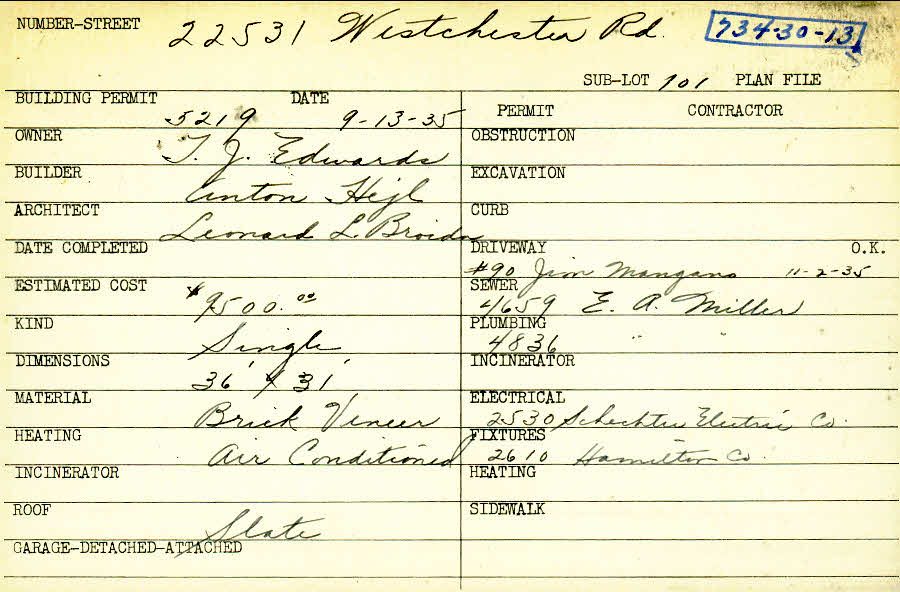 NUMBER-STREET 22531 Westchester Rd. 734-30-13
SUB-LOT 101 PLAN FILE
BUILDING PERMIT 5219 DATE 9-13-35
OWNER T. J. Edwards
BUILDER Anton Hejl
ARCHITECT Leonard L. Broida
DATE COMPLETED
ESTIMATED COST $9500.00
KIND Single
DIMENSIONS 36' x 31'
MATERIAL Brick Veneer
HEATING Air Conditioned
INCINERATOR
ROOF Slate
GARAGE-DETACHED-ATTACHED
PERMIT CONTRACTOR
OBSTRUCTION
EXCAVATION
CURB
DRIVEWAY O.K.
#90 Jim Mangano 11-2-35
SEWER
4659 E. A. Miller
PLUMBING
4836 " "
INCINERATOR
ELECTRICAL
2530 Schechter Electric Co.
FIXTURES
2610 Hamilton Co.
HEATING
SIDEWALK